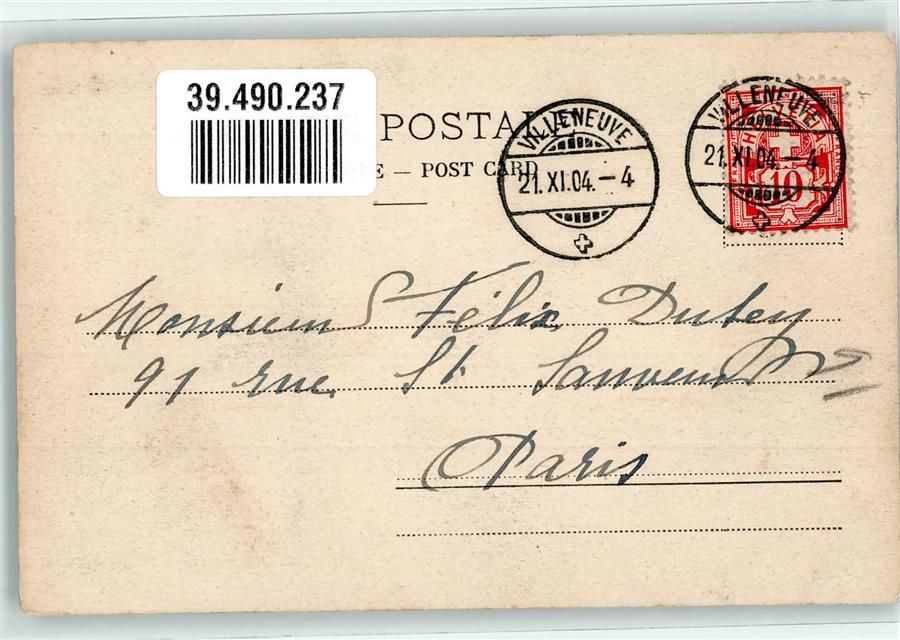 39.490.237
E POSTAL
E — POST CARD
VILLENEUVE
21. XI. 04. – 4
VILLENEUVE
21. XI. 04. – 4
HELVETIA
10
Monsieur Félix Dutey
91 rue St. Sauveur
Paris